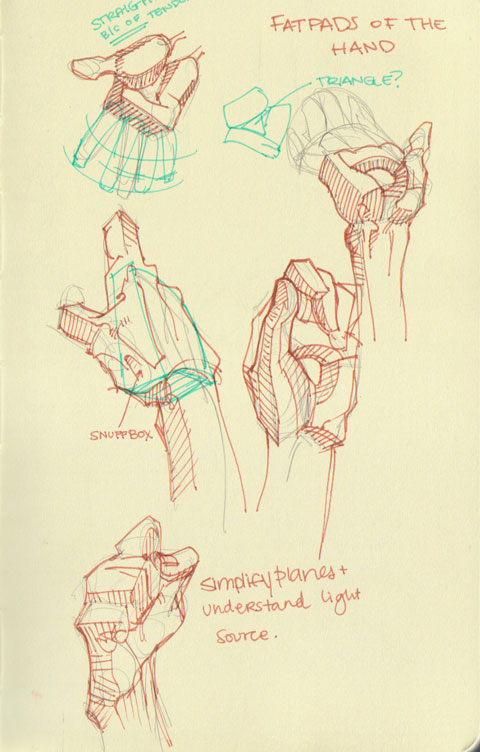 STRAIGHT
B/C OF TENDO
FATPADS OF THE
HAND
TRIANGLE?
SNUFFBOX
simplify planes +
understand light
source.